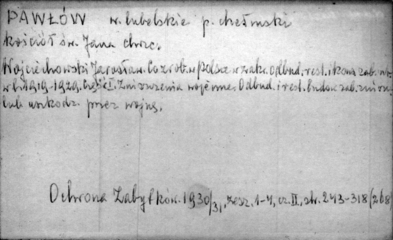 PAWŁÓW w. lubelskie p. chełmski
kościół św. Jana chrzc.
Wojciechowski Jarosław. Co zrob. w Polsce w zakr. odbud. rest. i kons. zab.
w l. 1919-1929. Część I. Zniszczenia wojenne. Odbud. i rest. budow. zab. zniszcz.
lub uszkodz. przez wojnę.
Ochrona Zabytków. 1930/31, zesz. 1-4, cz. II, str. 243-318 (268)